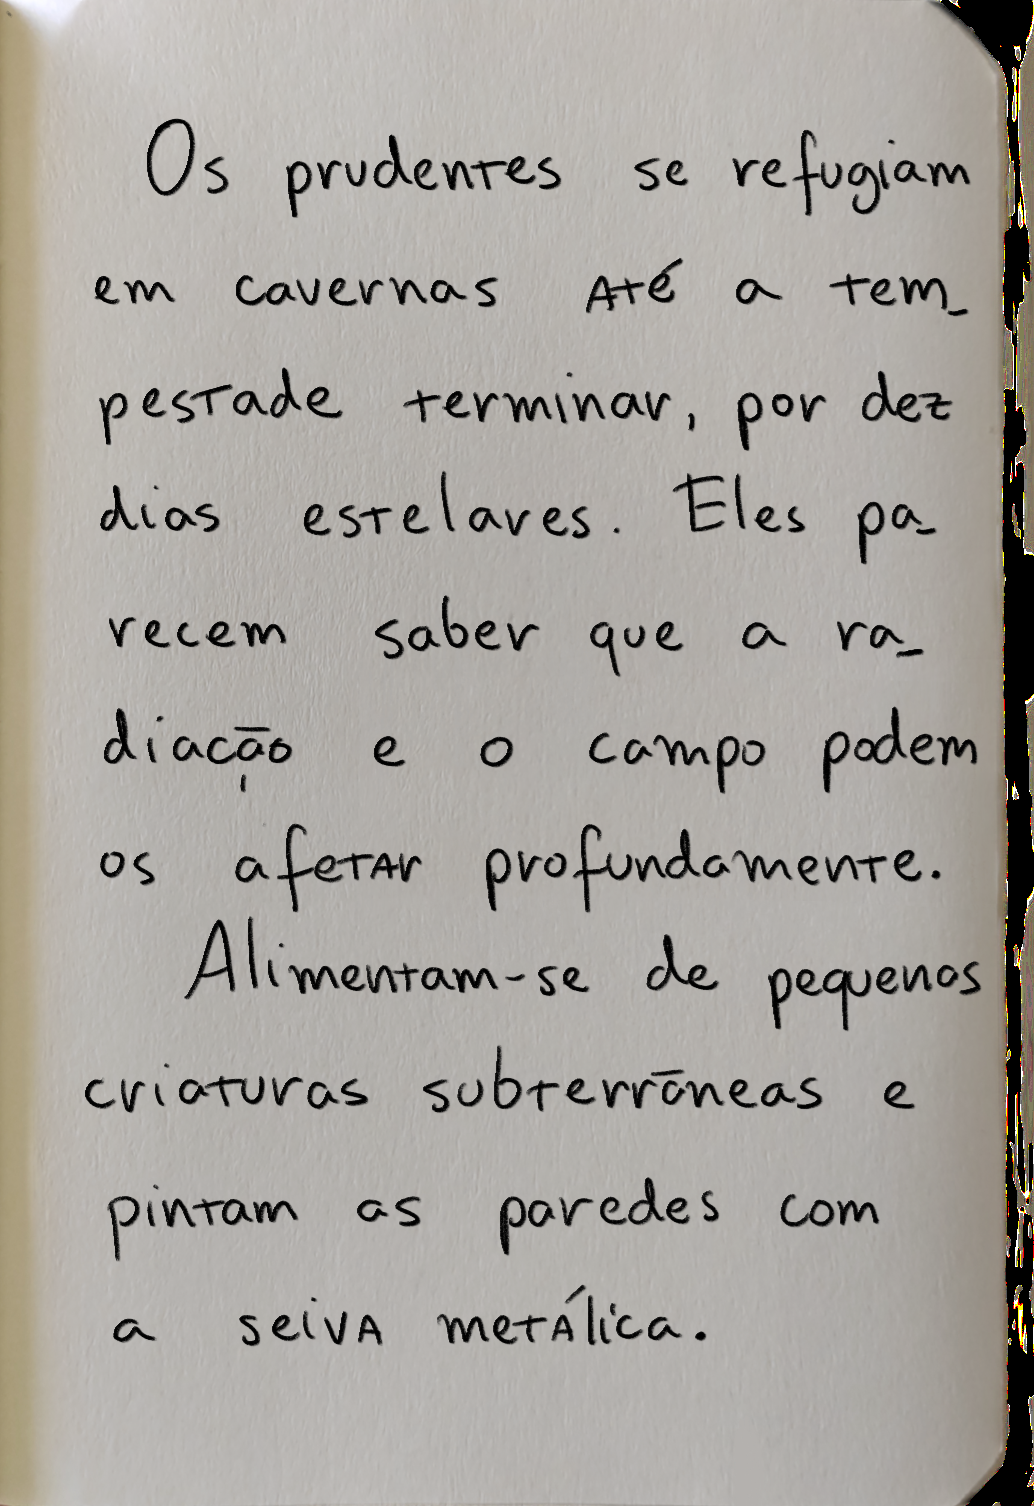 Os prudentes se refugiam
em cavernas até a tem-
pestade terminar, por dez
dias estelares. Eles pa-
recem saber que a ra-
diação e o campo podem
os afetar profundamente.
Alimentam-se de pequenas
criaturas subterrâneas e
pintam as paredes com
a seiva metálica.